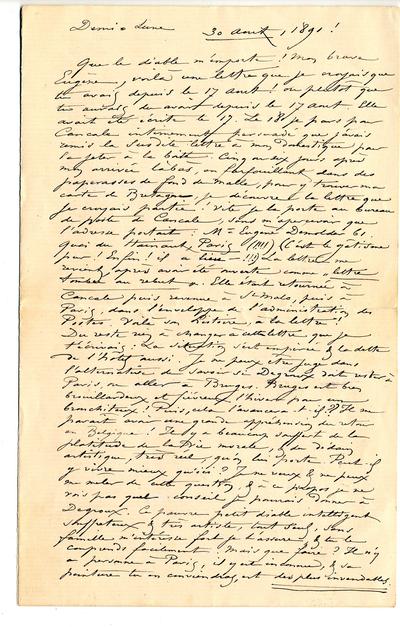 Demi-Lune 30 Aout, 1891 !
Que le diable m'emporte ! Mon brave
Eugène, voilà une lettre que je croyais que
tu avais depuis le 17 aout ! ou plutot que
tu aurais dû avoir depuis le 17 aout. Elle
avait été écrite le 17. Le 18 je pars pour
Cancale intimement persuadé que j'avais
remis la susdite lettre à mon domestique pour
la jeter à la boîte. Cinq ou six jours après
mon arrivée là bas, en farfouillant dans des
paperasses de fond de malle, pour y trouver ma
carte de Bretagne, je découvre la lettre que
je croyais partie ! vite je la porte au bureau
de poste de Cancale, sans m'apercevoir que
l'adresse portait : Mr Eugène Demolder 61.
quai du Hainaut, Paris (!!!!) (C'est le gâtisme
pur ! Enfin ! à Liège !!!) La lettre me
revient, après avoir été ouverte comme « lettre
tombée au rebut ». Elle était retournée à
Cancale puis revenue à St Malo, puis à
Paris, dans l'enveloppe de l'administration des
Postes. Voilà son histoire, à la lettre !
Du reste rien à changer à cette lettre que je
t'écrivais. La situation s'est empirée & la dette
de l'hotel aussi. Je ne peux être juge dans
l'alternative de savoir si Degroux doit rester à
Paris, ou aller à Bruges. Bruges est bien
brouillardeux & fiévreux l'hiver pour un
bronchiteux ! Puis, cela l'avancera-t-il ? Il me
parait avoir une grande appréhension du retour
en Belgique. Il y a beaucoup souffert de la
platitude de la vie morale, & du dédain
artistique, très réel, qu'on lui porte. Peut-il
y vivre mieux qu'ici ? Je ne veux & ne peux
me mêler de cette question, & à ce propos je ne
vois pas quel conseil je pourrais donner à
Degroux. Ce pauvre petit diable intelligent
souffreteux & très artiste, tout seul, sans
famille m'intéresse fort je t'assure, & tu le
comprends facilement. Mais que faire ? Il n'y
a personne à Paris, il y est inconnu, & sa
peinture tu en conviendras, est des plus invendables.